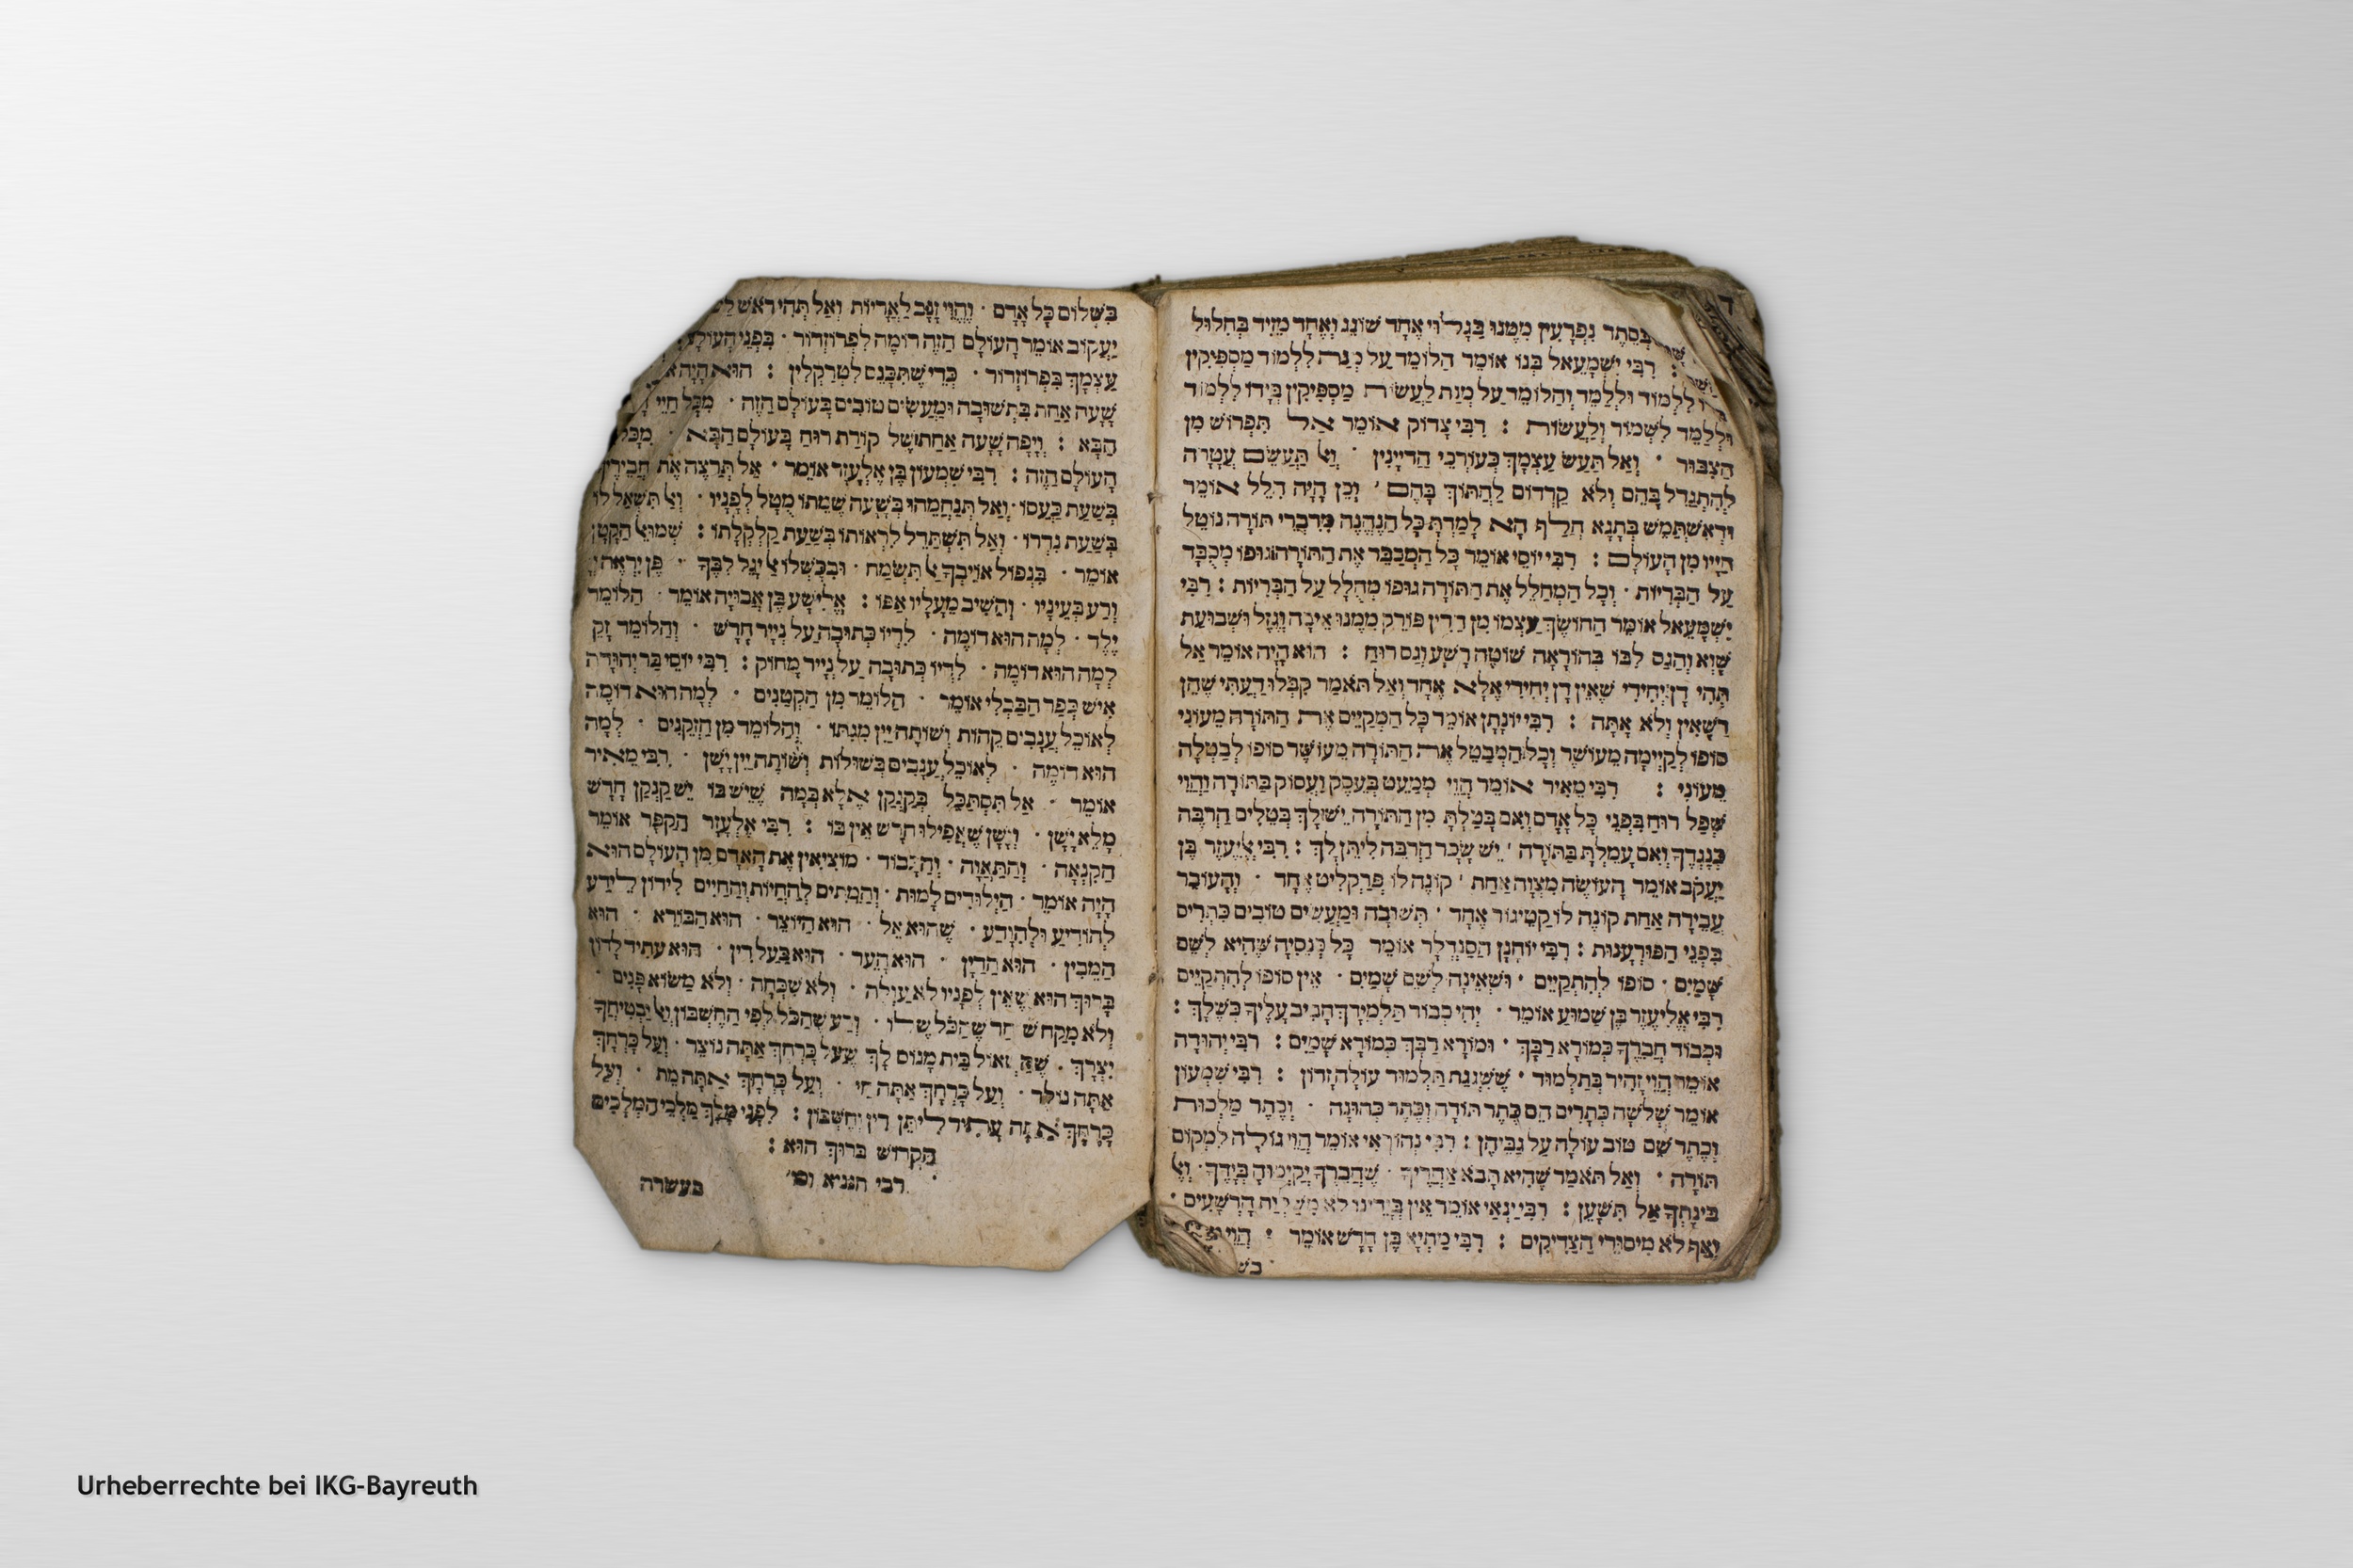 בְּסֵתֶר נִפְרָעִין מִמֶּנּוּ בְּגָלוּי אֶחָד שׁוֹגֵג וְאֶחָד מֵזִיד בְּחִלּוּל
: רִבִּי יִשְׁמָעֵאל בְּנוֹ אוֹמֵר הַלּוֹמֵד עַל מְנָת לְלַמֵּד מַסְפִּיקִין
לִלְמוֹד וּלְלַמֵּד וְהַלּוֹמֵד עַל מְנַת לַעֲשׂוֹת מַסְפִּיקִין בְּיָדוֹ לִלְמוֹד
וּלְלַמֵּד לִשְׁמוֹר וְלַעֲשׂוֹת : רִבִּי צָדוֹק אוֹמֵר אַל תִּפְרוֹשׁ מִן
הַצִּבּוּר · וְאַל תַּעַשׂ עַצְמָךְ כְּעוֹרְכֵי הַדַּיָּינִין · וְאַל תַּעֲשֵׂם עֲטָרָה
לְהִתְגַּדֵּל בָּהֶם וְלֹא קַרְדּוֹם לַחְתּוֹךְ בָּהֶם · וְכֵן הָיָה הִלֵּל אוֹמֵר
וּדְאִשְׁתַּמֵּשׁ בְּתָגָא חֲלַף הָא לָמַדְתָּ כָּל הַנֶּהֱנֶה מִדִּבְרֵי תּוֹרָה נוֹטֵל
חַיָּיו מִן הָעוֹלָם : רִבִּי יוֹסֵי אוֹמֵר כָּל הַמְכַבֵּד אֶת הַתּוֹרָה גּוּפוֹ מְכֻבָּד
עַל הַבְּרִיּוֹת · וְכָל הַמְחַלֵּל אֶת הַתּוֹרָה גּוּפוֹ מְחֻלָּל עַל הַבְּרִיּוֹת : רִבִּי
יִשְׁמָעֵאל אוֹמֵר הַחוֹשֵׂךְ עַצְמוֹ מִן הַדִּין פּוֹרֵק מִמֶּנּוּ אֵיבָה וְגֶזֶל וּשְׁבוּעַת
שָׁוְא וְהַגַּס לִבּוֹ בְּהוֹרָאָה שׁוֹטֶה רָשָׁע וְגַס רוּחַ : הוּא הָיָה אוֹמֵר אַל
תְּהִי דָן יְחִידִי שֶׁאֵין דָּן יְחִידִי אֶלָּא אֶחָד וְאַל תֹּאמַר קַבְּלוּ דַעְתִּי שֶׁהֵן
רַשָּׁאִין וְלֹא אַתָּה : רִבִּי יוֹנָתָן אוֹמֵר כָּל הַמְקַיֵּים אֶת הַתּוֹרָה מֵעוֹנִי
סוֹפוֹ לְקַיְּימָהּ מֵעוֹשֶׁר וְכָל הַמְבַטֵּל אֶת הַתּוֹרָה מֵעוֹשֶׁר סוֹפוֹ לְבַטְּלָהּ
מֵעוֹנִי : רִבִּי מֵאִיר אוֹמֵר הֱוֵי מְמַעֵט בְּעֵסֶק וַעֲסוֹק בַּתּוֹרָה וֶהֱוֵי
שְׁפַל רוּחַ בִּפְנֵי כָּל אָדָם וְאִם בָּטַלְתָּ מִן הַתּוֹרָה יֵשׁ לָךְ בְּטֵלִים הַרְבֵּה
כְּנֶגְדָּךְ וְאִם עָמַלְתָּ בַּתּוֹרָה · יֵשׁ שָׂכָר הַרְבֵּה לִיתֵּן לָךְ : רִבִּי אֱלִיעֶזֶר בֶּן
יַעֲקֹב אוֹמֵר הָעוֹשֶׂה מִצְוָה אַחַת · קוֹנֶה לוֹ פְּרַקְלִיט אֶחָד · וְהָעוֹבֵר
עֲבֵירָה אַחַת קוֹנֶה לוֹ קַטֵּיגוֹר אֶחָד · תְּשׁוּבָה וּמַעֲשִׂים טוֹבִים כִּתְרִים
בִּפְנֵי הַפּוּרְעָנוּת : רִבִּי יוֹחָנָן הַסַּנְדְּלָר אוֹמֵר כָּל כְּנֵסִיָּה שֶׁהִיא לְשֵׁם
שָׁמַיִם · סוֹפוֹ לְהִתְקַיֵּים · וְשֶׁאֵינָהּ לְשֵׁם שָׁמַיִם · אֵין סוֹפוֹ לְהִתְקַיֵּים
רִבִּי אֱלִיעֶזֶר בֶּן שַׁמּוּעַ אוֹמֵר · יְהִי כְבוֹד תַּלְמִידָךְ חָבִיב עָלֶיךָ כְּשֶׁלָּךְ :
וּכְבוֹד חֲבֵרָךְ כְּמוֹרָא רַבָּךְ · וּמוֹרָא רַבָּךְ כְּמוֹרָא שָׁמַיִם : רִבִּי יְהוּדָה
אוֹמֵר הֱוֵי זָהִיר בְּתַלְמוּד · שֶׁשִּׁגְגַת תַּלְמוּד עוֹלָה זָדוֹן : רִבִּי שִׁמְעוֹן
אוֹמֵר שְׁלֹשָׁה כְּתָרִים הֵם כֶּתֶר תּוֹרָה וְכֶתֶר כְּהוּנָּה · וְכֶתֶר מַלְכוּת
וְכֶתֶר שֵׁם טוֹב עוֹלָה עַל גַּבֵּיהֶן : רִבִּי נְהוֹרָאִי אוֹמֵר הֱוֵי גוֹלֶה לִמְקוֹם
תּוֹרָה · וְאַל תֹּאמַר שֶׁהִיא תָבֹא אַחֲרֶיךָ · שֶׁחֲבֵרֶךָ יְקַיְּמוּהָ בְּיָדֶךָ · וְאֶל
בִּינָתְךָ אַל תִּשָּׁעֵן : רִבִּי יַנַּאי אוֹמֵר אֵין בְּיָדֵינוּ לֹא הָרְשָׁעִים ·
וְאַף לֹא מִיסּוּרֵי הַצַּדִּיקִים : רִבִּי מַתְיָא בֶּן חָרָשׁ אוֹמֵר : הֱוֵי
בִּשְׁלוֹם כָּל אָדָם · וֶהֱוֵי זָנָב לָאֲרָיוֹת וְאַל תְּהִי רֹאשׁ
יַעֲקוֹב אוֹמֵר הָעוֹלָם הַזֶּה דּוֹמֶה לִפְרוֹזְדוֹר · בִּפְנֵי הָעוֹלָם
עַצְמָךְ בִּפְרוֹזְדוֹר · כְּדֵי שֶׁתִּכָּנֵס לִטְרַקְלִין : הוּא הָיָה
שָׁעָה אַחַת בִּתְשׁוּבָה וּמַעֲשִׂים טוֹבִים בָּעוֹלָם הַזֶּה · מִכָּל חַיֵּי
הַבָּא : וְיָפָה שָׁעָה אַחַת שֶׁל קוֹרַת רוּחַ בָּעוֹלָם הַבָּא · מִכָּל
הָעוֹלָם הַזֶּה : רִבִּי שִׁמְעוֹן בֶּן אֶלְעָזָר אוֹמֵר · אַל תְּרַצֶּה אֶת חֲבֵירֶךָ
בְּשָׁעַת כַּעֲסוֹ · וְאַל תְּנַחֲמֵהוּ בְּשָׁעָה שֶׁמֵּתוֹ מֻטָּל לְפָנָיו · וְאַל תִּשְׁאַל לוֹ
בְּשָׁעַת נִדְרוֹ · וְאַל תִּשְׁתַּדֵּל לִרְאוֹתוֹ בְּשָׁעַת קַלְקָלָתוֹ : שְׁמוּאֵל הַקָּטָן
אוֹמֵר · בִּנְפוֹל אוֹיִבְךָ אַל תִּשְׂמַח · וּבִכָּשְׁלוֹ אַל יָגֵל לִבֶּךָ · פֶּן יִרְאֶה יְיָ
וְרַע בְּעֵינָיו · וְהֵשִׁיב מֵעָלָיו אַפּוֹ : אֱלִישָׁע בֶּן אֲבוּיָה אוֹמֵר · הַלּוֹמֵד
יֶלֶד · לְמָה הוּא דוֹמֶה · לִדְיוֹ כְּתוּבָה עַל נְיָיר חָדָשׁ · וְהַלּוֹמֵד זָקֵן
לְמָה הוּא דוֹמֶה · לִדְיוֹ כְּתוּבָה עַל נְיָיר מָחוּק : רִבִּי יוֹסֵי בַּר יְהוּדָה
אִישׁ כְּפַר הַבַּבְלִי אוֹמֵר · הַלּוֹמֵד מִן הַקְּטַנִּים · לְמָה הוּא דוֹמֶה
לְאוֹכֵל עֲנָבִים קֵהוֹת וְשׁוֹתֶה יַיִן מִגִּתּוֹ · וְהַלּוֹמֵד מִן הַזְּקֵנִים · לְמָה
הוּא דוֹמֶה · לְאוֹכֵל עֲנָבִים בְּשׁוּלוֹת וְשׁוֹתֶה יַיִן יָשָׁן · רִבִּי מֵאִיר
אוֹמֵר · אַל תִּסְתַּכַּל בַּקַּנְקַן אֶלָּא בְּמָה שֶׁיֵּשׁ בּוֹ יֵשׁ קַנְקַן חָדָשׁ
מָלֵא יָשָׁן · וְיָשָׁן שֶׁאֲפִילוּ חָדָשׁ אֵין בּוֹ : רִבִּי אֶלְעָזָר הַקַּפָּר אוֹמֵר
הַקִּנְאָה · וְהַתַּאֲוָה · וְהַכָּבוֹד · מוֹצִיאִין אֶת הָאָדָם מִן הָעוֹלָם הוּא
הָיָה אוֹמֵר · הַיִּלּוֹדִים לָמוּת · וְהַמֵּתִים לְהַחֲיוֹת וְהַחַיִּים לִידוֹן לֵידַע
לְהוֹדִיעַ וּלְהִוָּדַע · שֶׁהוּא אֵל · הוּא הַיּוֹצֵר · הוּא הַבּוֹרֵא · הוּא
הַמֵּבִין · הוּא הַדַּיָּן · הוּא הָעֵד · הוּא בַּעַל דִּין · הוּא עָתִיד לָדוּן
בָּרוּךְ הוּא שֶׁאֵין לְפָנָיו לֹא עַוְלָה · וְלֹא שִׁכְחָה · וְלֹא מַשּׂוֹא פָנִים ·
וְלֹא מִקַּח שׁחַד שֶׁהַכֹּל שֶׁלּוֹ · וְדַע שֶׁהַכֹּל לְפִי הַחֶשְׁבּוֹן וְאַל יַבְטִיחֲךָ
יִצְרָךְ · שֶׁהַשְּׁאוֹל בֵּית מָנוֹס לָךְ שֶׁעַל כָּרְחָךְ אַתָּה נוֹצָר · וְעַל כָּרְחָךְ
אַתָּה נוֹלָד · וְעַל כָּרְחָךְ אַתָּה חַי · וְעַל כָּרְחָךְ אַתָּה מֵת · וְעַל
כָּרְחָךְ אַתָּה עָתִיד לִיתֵּן דִּין וְחֶשְׁבּוֹן : לִפְנֵי מֶלֶךְ מַלְכֵי הַמְּלָכִים
הַקָּדוֹשׁ בָּרוּךְ הוּא :
רבי חנניא וכו׳
בעשרה
Urheberrechte bei IKG-Bayreuth